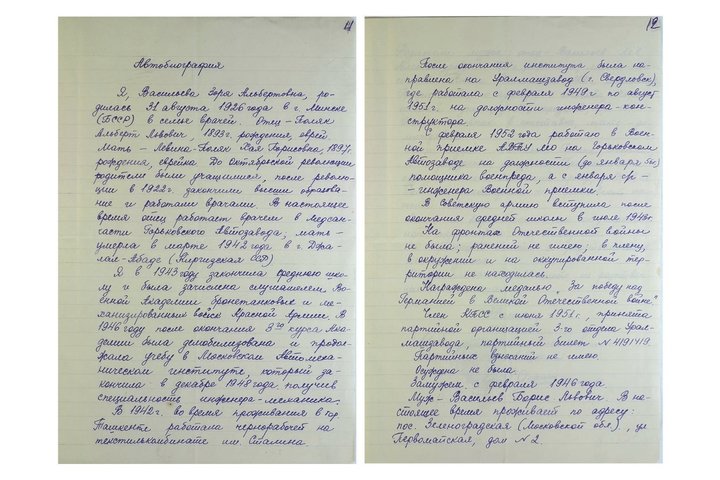 11
Автобиография
Я, Васильева Зоря Альбертовна, ро-
дилась 31 августа 1926 года в г. Минске
(БССР) в семье врачей. Отец - Поляк
Альберт Львович, 1893г. рождения, еврей
Мать - Левина-Поляк Рая Борисовна, 1897г.
рождения, еврейка. До Октябрьской революции
родители были учащимися, после револю-
ции в 1922г. закончили высшее образова-
ние и работали врачами. В настоящее
время отец работает врачем в Медсан-
части Горьковского Автозавода; мать -
умерла в марте 1942 года в г. Джа-
лал-Абаде (Киргизская ССР)
Я в 1943 году закончила среднюю шко-
лу и была зачислена слушателем Во-
енной Академии бронетанковых и ме-
ханизированных войск Красной Армии. В
1946 году после окончания 3го курса Ака-
демии была демобилизована и продол-
жала учебу в Московском Автомеха-
ническом институте, который за-
кончила в декабре 1948 года получив
специальность инженера-механика.
В 1942г. во время проживания в гор.
Ташкенте работала чернорабочей на
текстилькомбинате им. Сталина
12
После окончания института была на-
правлена на Уралмашзавод (г. Свердловск),
где работала с февраля 1949г. по август
1951г. на должности инженера-кон-
структора
С февраля 1952 года работаю в Воен-
ной приемке на Горьковском
Автозаводе на должности (до января
помощника военпреда, а с января
- инженера Военной приемки.
В Советскую армию вступила после
окончания средней школы в июле 1943г.
На фронтах Отечественной войны
не была; ранений не имею; в плену,
в окружении и на оккупированной тер-
ритории не находилась.
Награждена медалью "За победу над
Германией в Великой Отечественной войне"
Член КПСС с июня 1951г., принята
партийной организацией 3-го отдела Урал-
машзавода, партийный билет N 4191419.
Партийных взысканий не имею
Осуждена не была
Замужем с февраля 1946 года
Муж - Васильев Борис Львович. В на-
стоящее время проживает по адресу:
пос. Зеленоградская (Московской обл.), ул
Первомайская, дом N 2